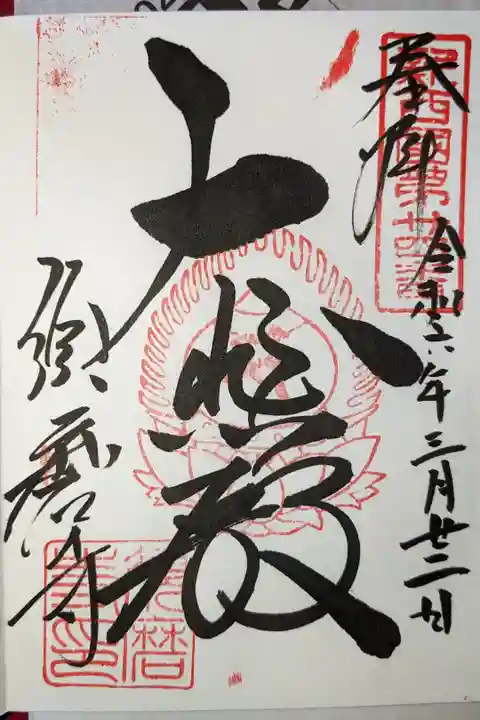 奉拝
令和六年三月廿二日
大悲殿
須磨寺